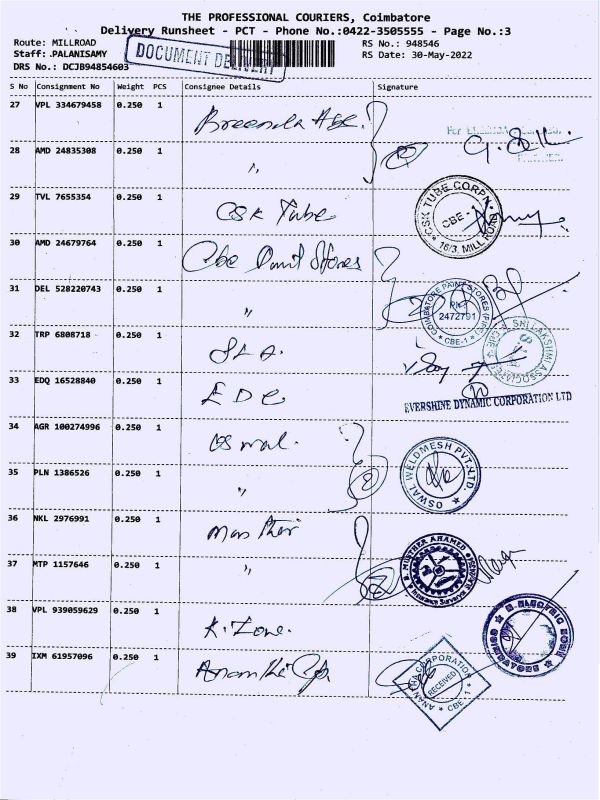 THE PROFESSIONAL COURIERS, Coimbatore
Delivery Runsheet - PCT - Phone No.:0422-3505555 - Page No.:3
Route: MILLROAD
RS No.: 948546
Staff: PALANISAMY
RS Date: 30-May-2022
DRS No.: DCJB94854603
DOCUMENT DELIVERY
S No Consignment No Weight PCS Consignee Details Signature
27 VPL 334679458 0.250 1
28 AMD 24835308 0.250 1 "
29 TVL 7655354 0.250 1 CSK Tube
CSK TUBE CORPN. CBE - 1 16/3, MILL ROAD
30 AMD 24679764 0.250 1 Cbe Paint Stores
31 DEL 528220743 0.250 1 "
COIMBATORE PAINT STORES 2472791 CBE-1
32 TRP 6808718 0.250 1 SLA.
SRI LAKSHMI ASSOCIATES
33 EDQ 16528840 0.250 1 EDC
EVERSHINE DYNAMIC CORPORATION LTD
34 AGR 100274996 0.250 1 Oswal.
35 PLN 1386526 0.250 1 "
OSWAL WELDMESH PVT. LTD.
36 NKL 2976991 0.250 1
37 MTP 1157646 0.250 1 "
AHAMED Insurance Surveyor
38 VPL 939059629 0.250 1 K. Zone.
COIMBATORE
39 IXM 61957096 0.250 1
ANANTHA CORPORATION RECEIVED CBE - 1